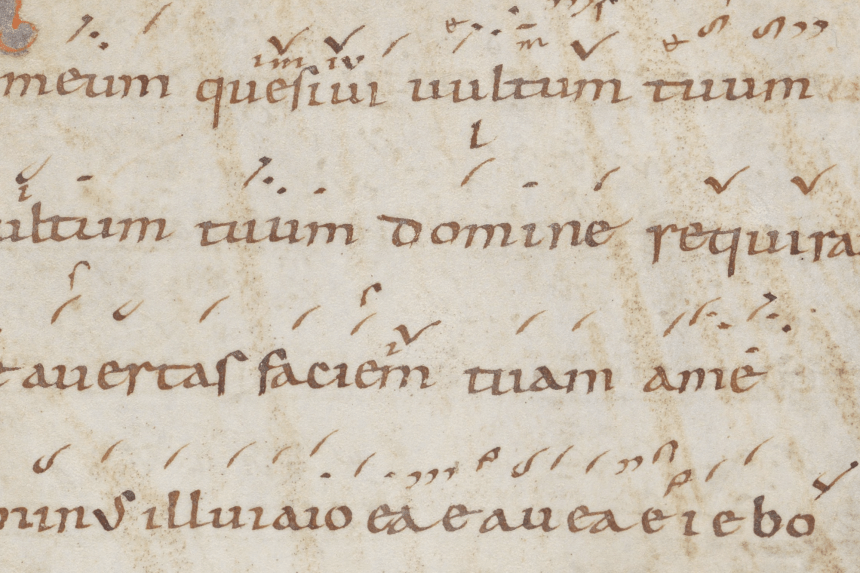 meum quesiui uultum tuum
ultum tuum domine requira
auertas faciem tuam ame
minus illuiaio ea e au ea e i e bo